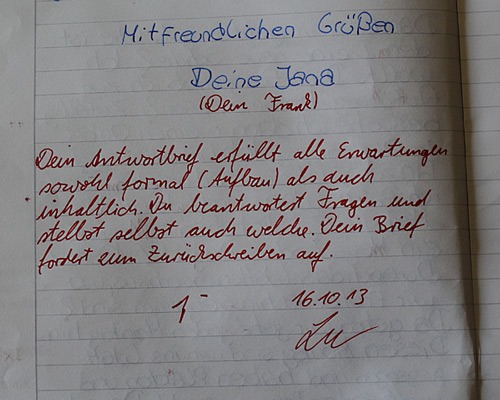 Mitfreundlichen Grüßen
Deine Jana
(Dein Frank)
Dein Antwortbrief erfüllt alle Erwartungen
sowohl formal (Aufbau) als auch
inhaltlich. Du beantwortest Fragen und
stellst selbst auch welche. Dein Brief
fordert zum Zurückschreiben auf.
1- 16.10.13